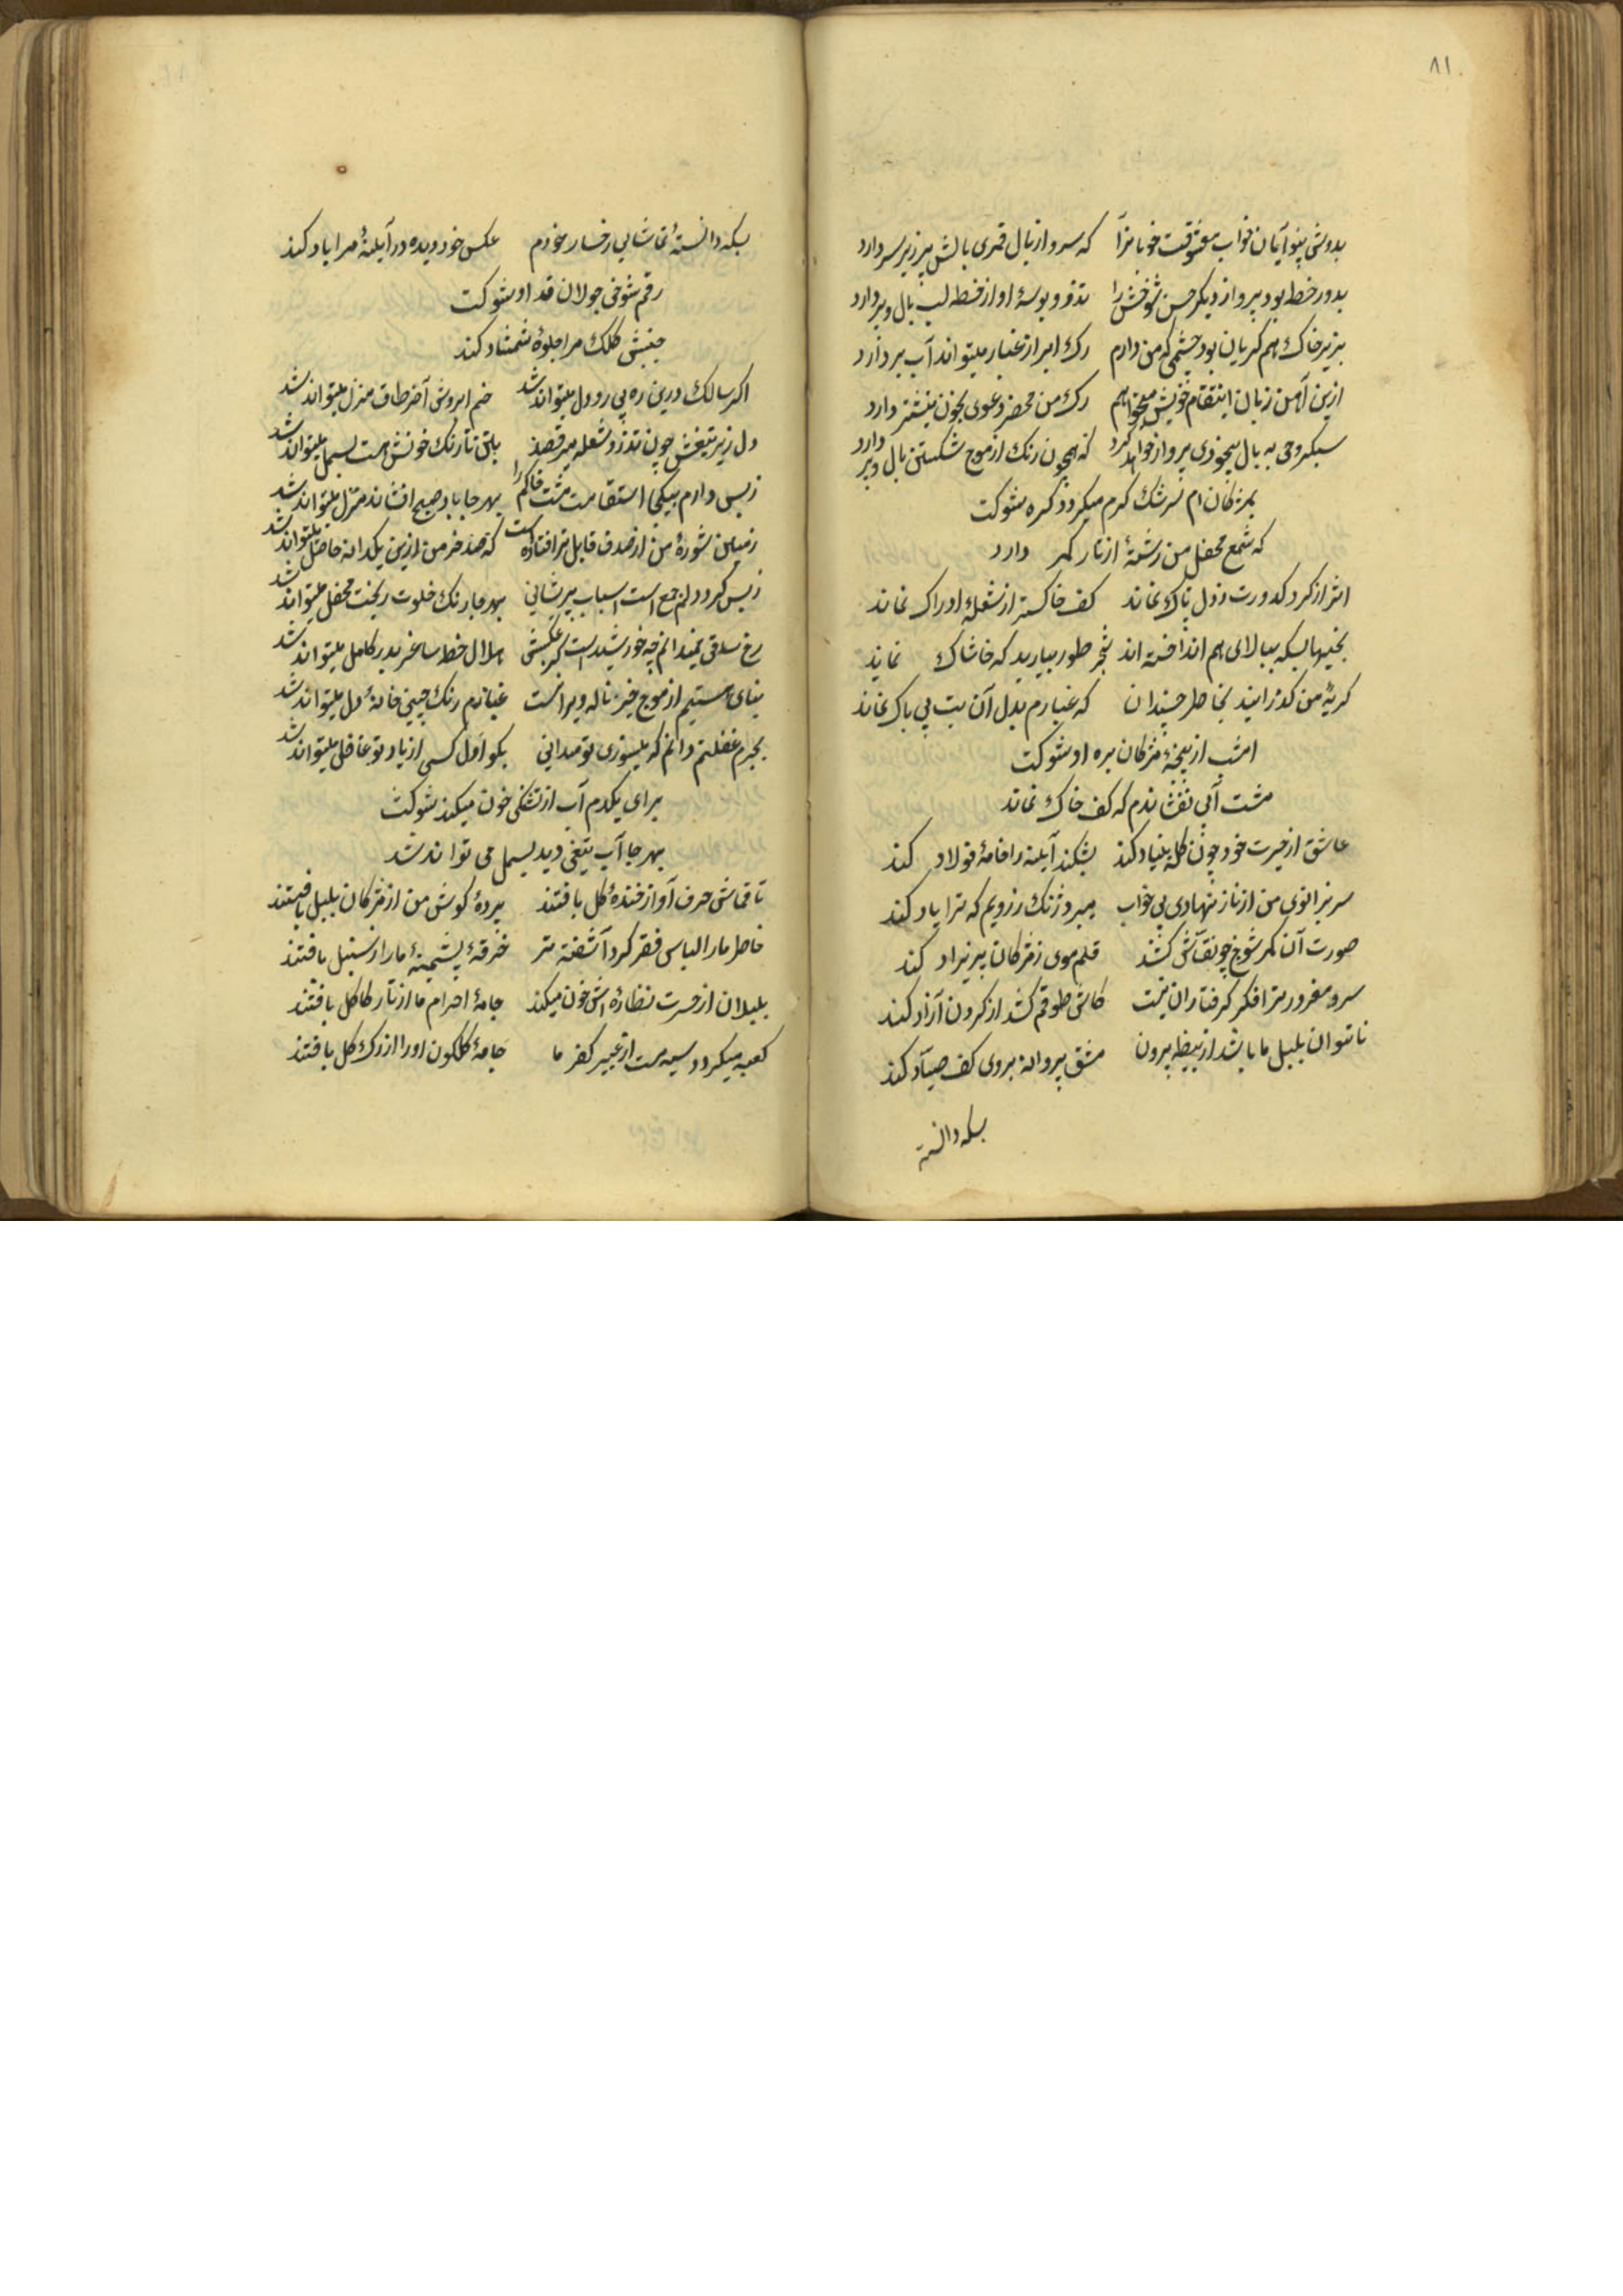 ٨١
بدوش بینوایان خواب معشوقست خوبانرا که سرو از بال قمری بالش پر زیر سر دارد
بدور خط بود پرواز دیگر حسن شوخش را تذرو بوسهٔ او از خط لب بال و پر دارد
بزیر خاک هم گریان بود چشمی که من دارم رک ابر از غبار میتواند آب بردارد
ازین آهن زبان انتقام خویش میخواهم رک من محضر دعوی بخون نیشتر دارد
سبکروحی به بال بیخودی پرواز خواهد کرد که همچون رنک از موج شکستن بال و پر دارد
بمژکان ام سرشک کرم میکردد کره شوکت
که شمع محفل من رشتهٔ از تار کمر دارد
اثر از کرد کدورت ز دل پاک نماند کف خاکستر از شعلهٔ ادراک نماند
بخیهها بسکه ببالای هم انداخته اند شجر طور بیارید که خاشاک نماند
کریهٔ من کذرانید بخاطر چندان که غبارم بدل آن بت بی باک نماند
امشب از پنجهٔ مژکان بره او شوکت
مشت آبی نفشاندم که کف خاک نماند
عاشق از حیرت خود چون کله بنیاد کند بشکند آینه را خامهٔ فولاد کند
سر بزانوی من از ناز نهادی پی خواب میرود رنک ز رویم که ترا یاد کند
صورت آن کمر شوخ چو نقاش کشد قلم موی ز مژکان پریزاد کند
سرو مغرور ترا فکر کرفتاران نیست کاش طوقم کشد از کردن آزاد کند
ناتوان بلبل ما باشد از بیضه برون مشق پروانه بروی کف صیاد کند
بسکه دانسته
بسکه دانستهٔ تماشایی رخسار خودم عکس خود دیده در آینهٔ مرا یاد کند
رقم شوخی جولان قد او شوکت
جنبش کلک مرا جلوهٔ شمشاد کند
اکر سالک درین ره پی رو دل میتواند شد خم ابروش آخر طاق منزل میتواند شد
دل زیر تیغش چون تذرو شعله میرقصد باین تا رنک خونش هست بسمل میتواند شد
ز بس دارم بیکجا استقامت مشت خاکم را بهر جا باد صبح افشاند منزل میتواند شد
زمین شورهٔ من از صدف قابل تر افتاده است که صد خرمن ازین یکدانه حاصل میتواند شد
ز بس کرد دلم جمع است اسباب پریشانی بهر جا رنک خلوت ریخت محفل میتواند شد
رخ ساقی نمیدانم چه خورشیدست کز عکسش هلال خط ساغر بدر کامل میتواند شد
بنای هستیم از موج خیز ناله ویرانست غبارم رنک چینی خانهٔ دل میتواند شد
بجرم غفلتم دانم که میسوزی تو میدانی بکو اول کسی از یاد تو غافل میتواند شد
برای یکدم آب از تشنکی خون میکند شوکت
بهر جا آب تیغی دید بسمل می تواند شد
تا قماش حرف آواز خندهٔ کل بافتند پردهٔ کوش من از مژکان بلبل بافتند
خاطر ما را لباس فقر کرد آشفته تر خرقهٔ پشمینهٔ ما را ز سنبل بافتند
بلبلان از حسرت نظارهٔ اش خون میکند جامهٔ احرام ما از تار کاکل بافتند
کعبه میکردد سیه مست از عبیر کفر ما جامهٔ کلکون او را از رک کل بافتند